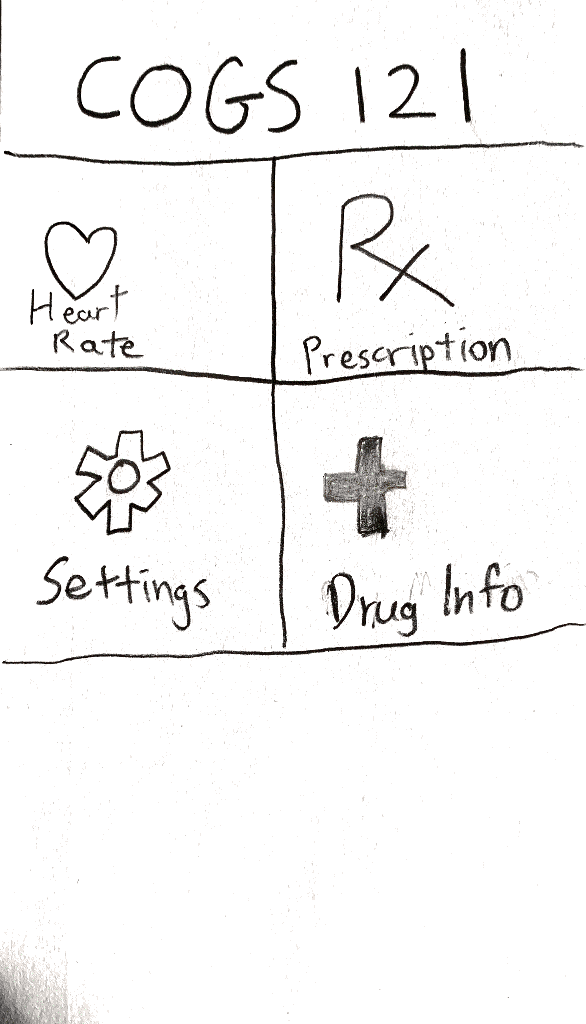 COGS 121
Heart
Rate
Rx
Prescription
Settings
Drug Info